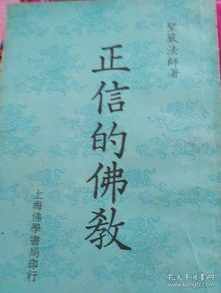 聖嚴法師著
正信的佛教
上海佛學書局印行